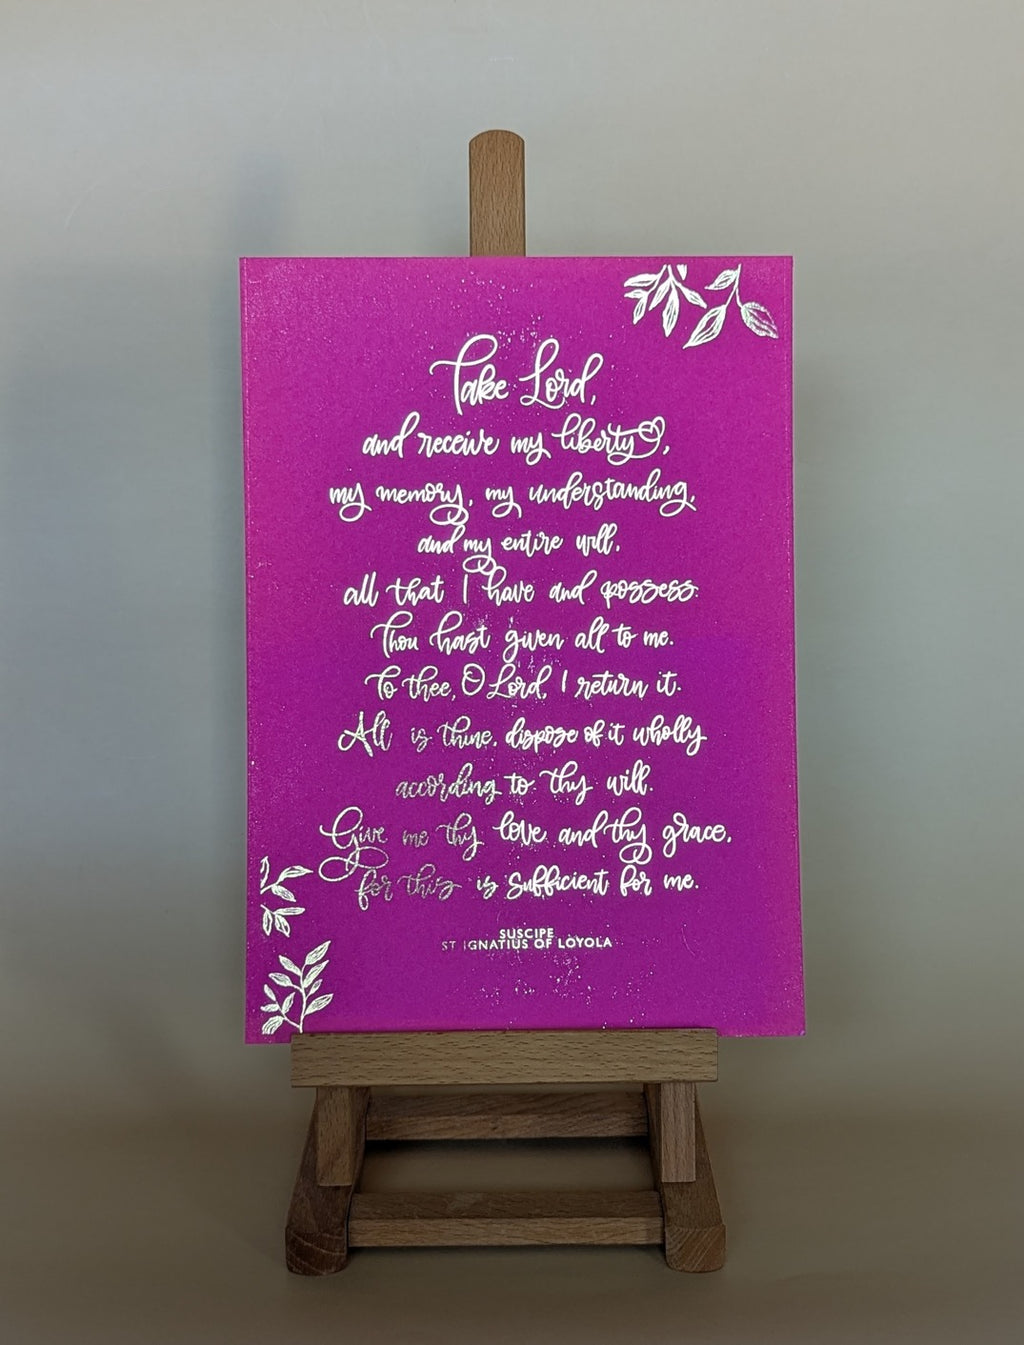 Take Lord,
and receive my liberty,
my memory, my understanding,
and my entire will,
all that I have and possess.
Thou hast given all to me.
To thee, O Lord, I return it.
All is thine, dispose of it wholly
according to thy will.
Give me thy love and thy grace,
for this is sufficient for me.
SUSCIPE
ST IGNATIUS OF LOYOLA